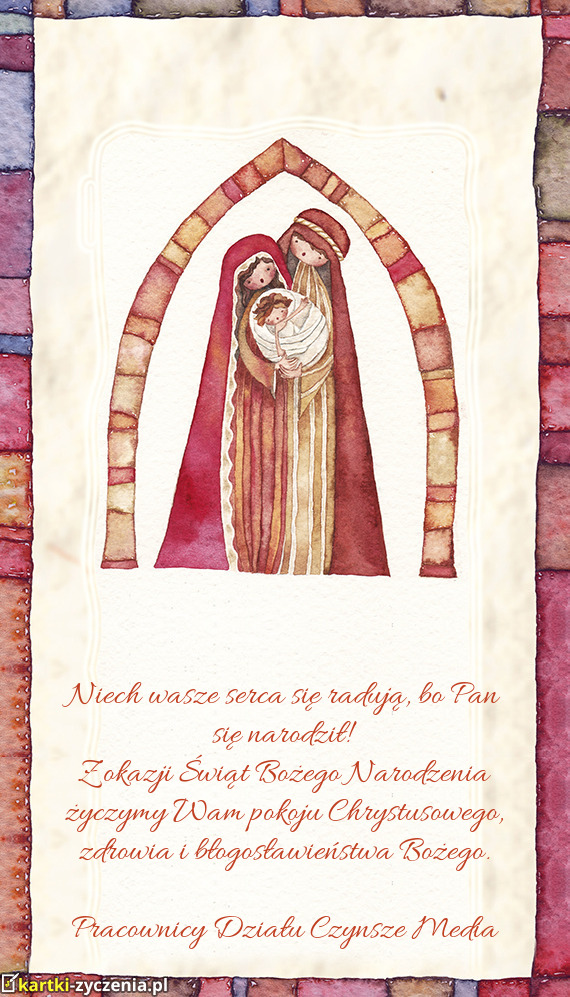 Niech wasze serca się radują, bo Pan
się narodził!
Z okazji Świąt Bożego Narodzenia
życzymy Wam pokoju Chrystusowego,
zdrowia i błogosławieństwa Bożego.
Pracownicy Działu Czynsze Media
kartki-zyczenia.pl